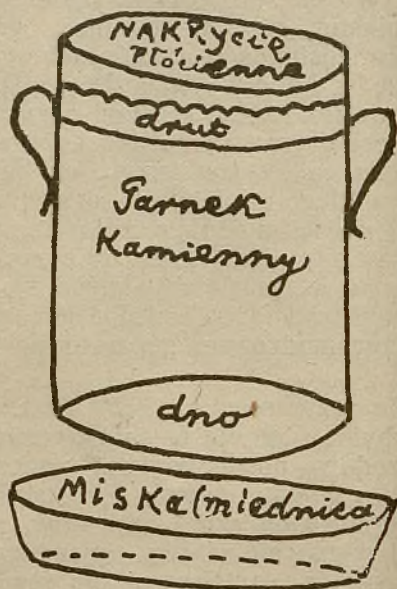 NAKRycię
Płócienne
drut
Garnek
Kamienny
dno
Miska (miednica